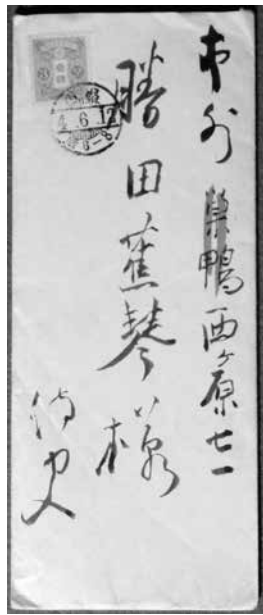 市外 巣鴨西ヶ原七一
勝田蕉琴様
侍史
4.6.12